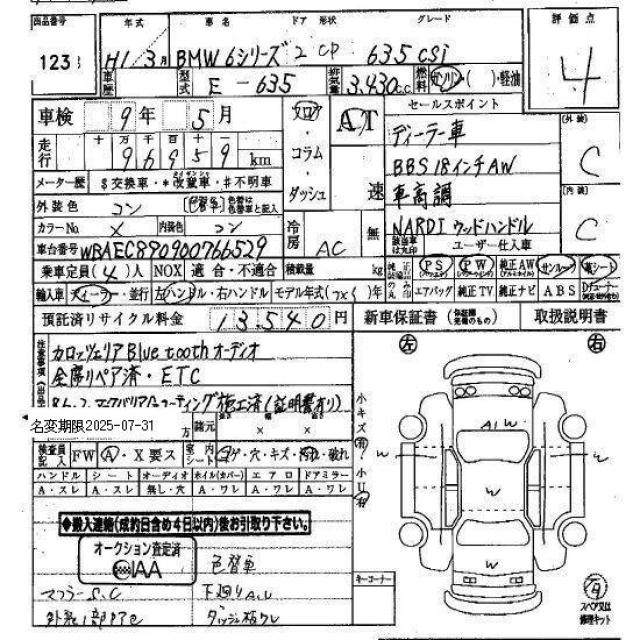 出品番号 年式 車名 ドア 形状 グレード 評価点
123 H1/3月 BMW 6シリーズ 2 CP 635 CSi 4
車歴 型式 E-635 排気量 3,430 c.c. 燃料 ガソリン・( )・軽油
車検 9年 5月 フロア・コラム・ダッシュ AT 速 セールスポイント
走行 十万千百十一
96959 km
ディーラー車
BBS 18インチAW
車高調
NARDI ウッドハンドル
メーター歴 $交換車・*改ざん車・#不明車
外装色 コン (色替車)
カラーNo. X 内装色 コン 冷房 AC 無 ユーザー仕入車
[外装] C
[内装] C
車台番号 WBAEC890900766529
乗車定員(4)人 NOX 適合・不適合 積載量 kg PS PW 純正AW サンルーフ 革シート
輸入車 ディーラー・並行 左ハンドル・右ハンドル モデル年式( )年 エアバッグ 純正TV 純正ナビ ABS
預託済リサイクル料金 13,540円 新車保証書 取扱説明書
注意事項 カロッツェリア Blue toothオーディオ
全席リペア済・ETC
施工済(証明書有り)
名変期限2025-07-31 万 諸元 × ×
左 右
検査員記入 FW A・X要ス 室内シート コゲ・穴・キズ・汚れ・破れ
ハンドル シート オーディオ ホイル(カバー) エアロ ドアミラー
A・スレ A・スレ 無し・穴 A・ワレ A・ワレ A・ワレ
小キズ有 小U有
A1W
W
W
W
◆搬入連絡(成約日含め4日以内)後お引取り下さい。
オークション査定済
AA
色替車
マフラーS.C 下廻りA.U
外装1部タッチ ダッシュ板ワレ
キーコーナー
スペア又は修理キット